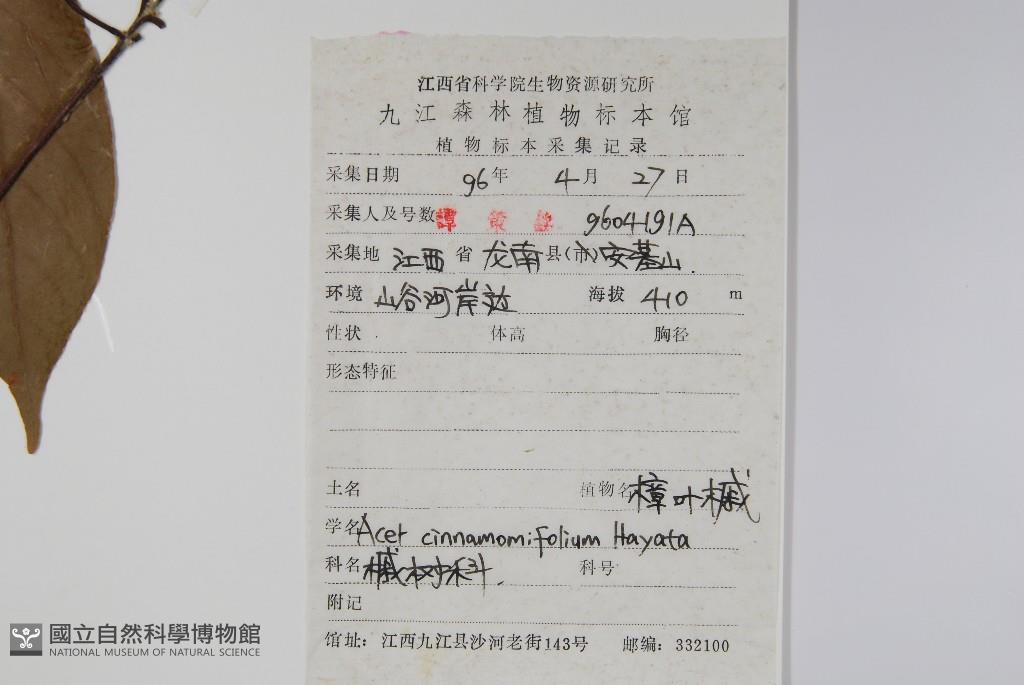 江西省科学院生物资源研究所
九江森林植物标本馆
植物标本采集记录
采集日期 96年 4月 27日
采集人及号数 譚策銘 9604191A
采集地 江西 省 龙南 县(市) 安基山.
环境 山谷河岸边 海拔 410 m
性状 体高 胸径
形态特征
土名 植物名 樟叶槭
学名 Acer cinnamomifolium Hayata
科名 槭树科. 科号
附记
馆址：江西九江县沙河老街143号 邮编：332100
國立自然科學博物館
NATIONAL MUSEUM OF NATURAL SCIENCE